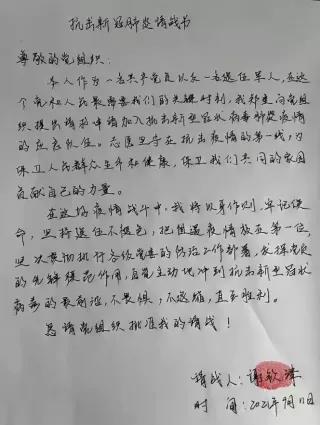 抗击新冠肺炎请战书
尊敬的党组织:
本人作为一名共产党员以及一名退役军人,在这
个党和人民最需要我们的关键时刻,我郑重向党组
织提出请求申请加入抗击新型冠状病毒肺炎疫情
的应急队伍。志愿坚守在抗击疫情的第一线,为
保卫人民群众生命和健康,保卫我们共同的家园
贡献自己的力量。
在这场疫情战斗中,我将以身作则,牢记使
命,坚持退役不褪色,把阻遏疫情放在第一位,
坚决贯彻执行总组党委的防治工作部署,发挥党员
的先锋模范作用,自觉主动地冲到抗击新型冠状
病毒的最前沿,不畏惧,不退缩,直至胜利。
恳请党组织批准我的请战!
请战人:谢钦
时间:2021年9月11日